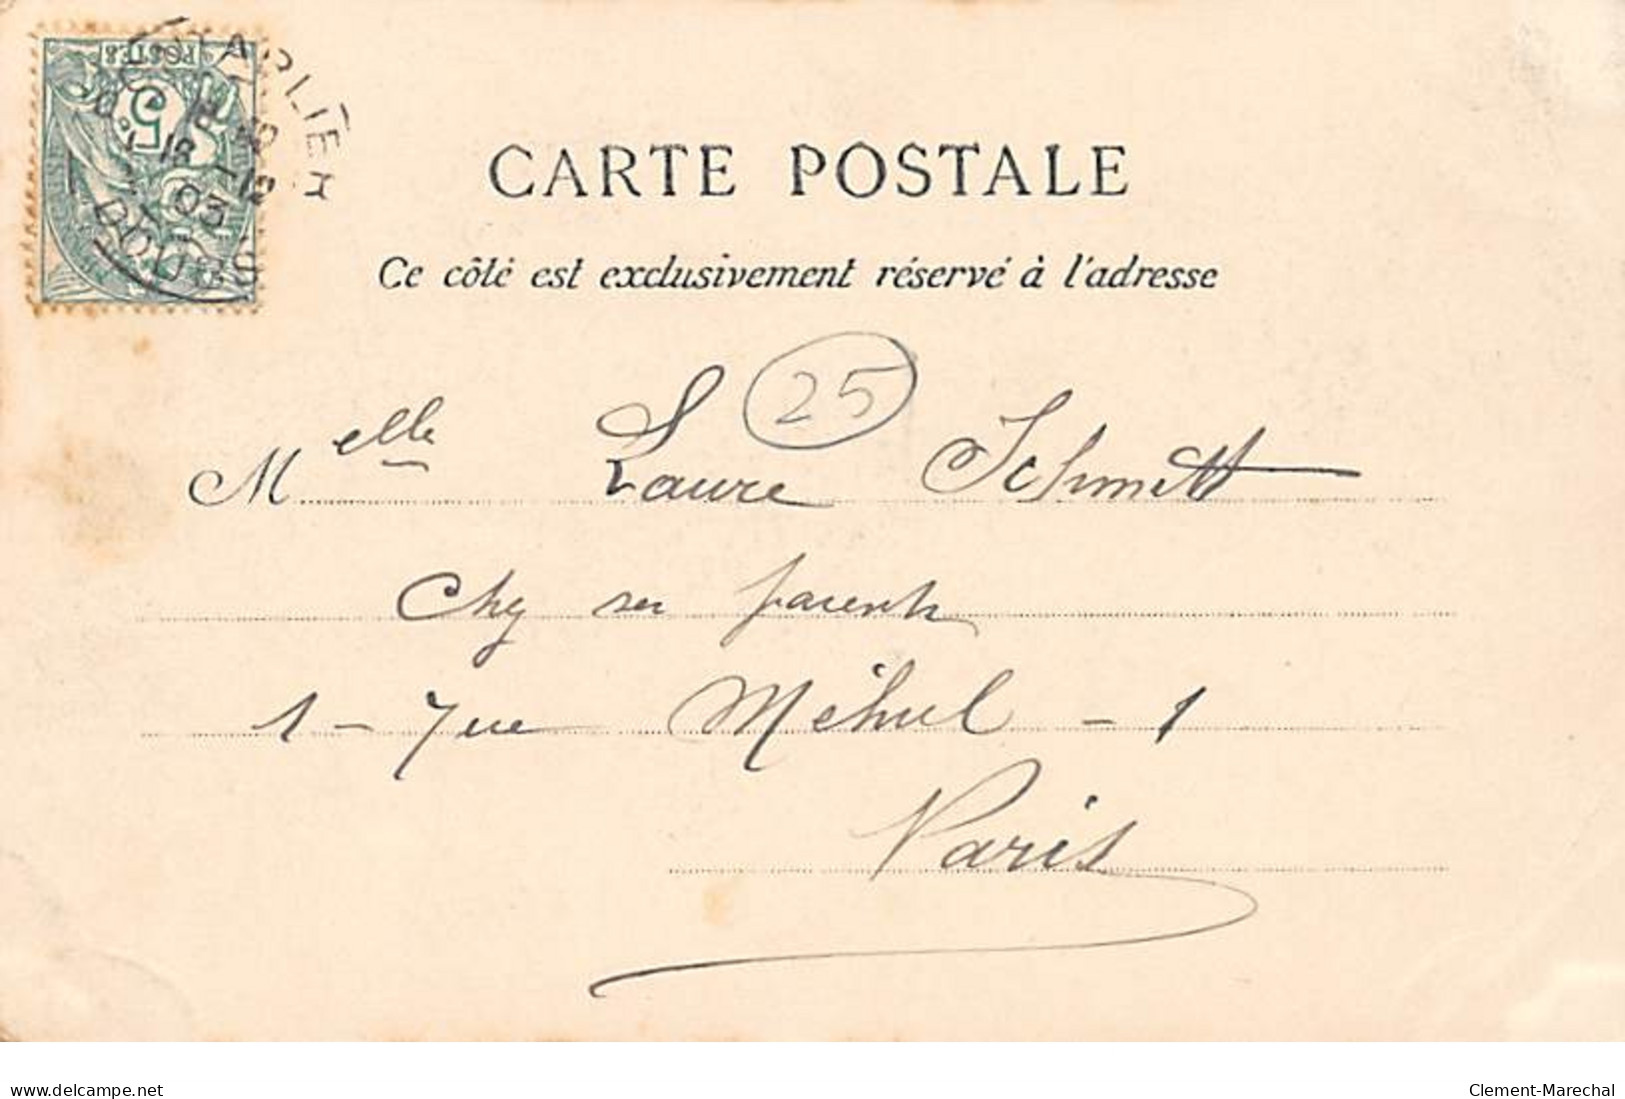 POSTES
5
PONTARLIER
18
03
DOUBS
CARTE POSTALE
Ce côté est exclusivement réservé à l'adresse
25
Melle Laure Schmitt
Chez ses parents
1 - rue Méhul - 1
Paris
delcampe.net
Clement-Marechal